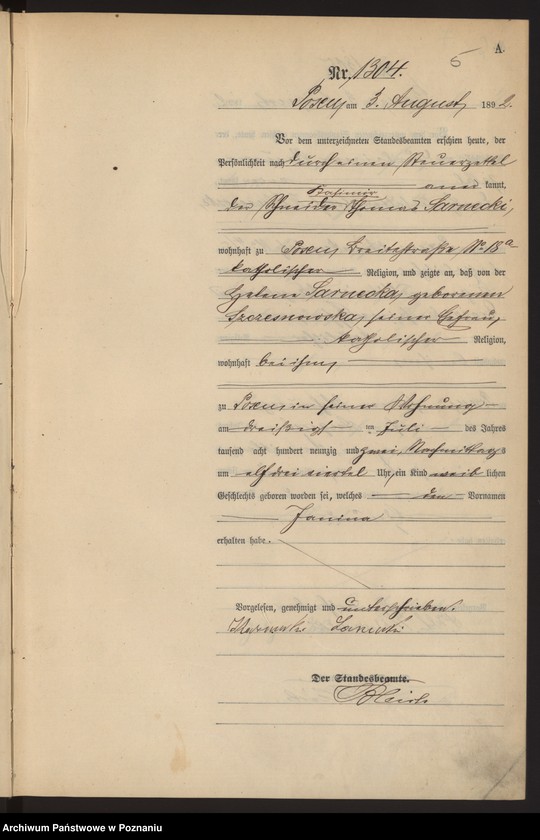 5
A
Nr. 1304.
Posen, am 3. August 1892.
Vor dem unterzeichneten Standesbeamten erschien heute, der
Persönlichkeit nach durch einen Steuerzettel
anerkannt,
Kasimir
der Schneider Thomas Sarnecki,
wohnhaft zu Posen, Breitestraße No 18a
katholischer Religion, und zeigte an, daß von der
Helene Sarnecka, geborenen
Szczesnowska, seiner Ehefrau,
katholischer Religion,
wohnhaft bei ihm,
zu Posen, in seiner Wohnung
am dreißigsten Juli des Jahres
tausend acht hundert neunzig und zwei, Nachmittags
um elf drei viertel Uhr, ein Kind weiblichen
Geschlechts geboren worden sei, welches den Vornamen
Janina
erhalten habe.
Vorgelesen, genehmigt und unterschrieben.
Der Standesbeamte.
Archiwum Państwowe w Poznaniu